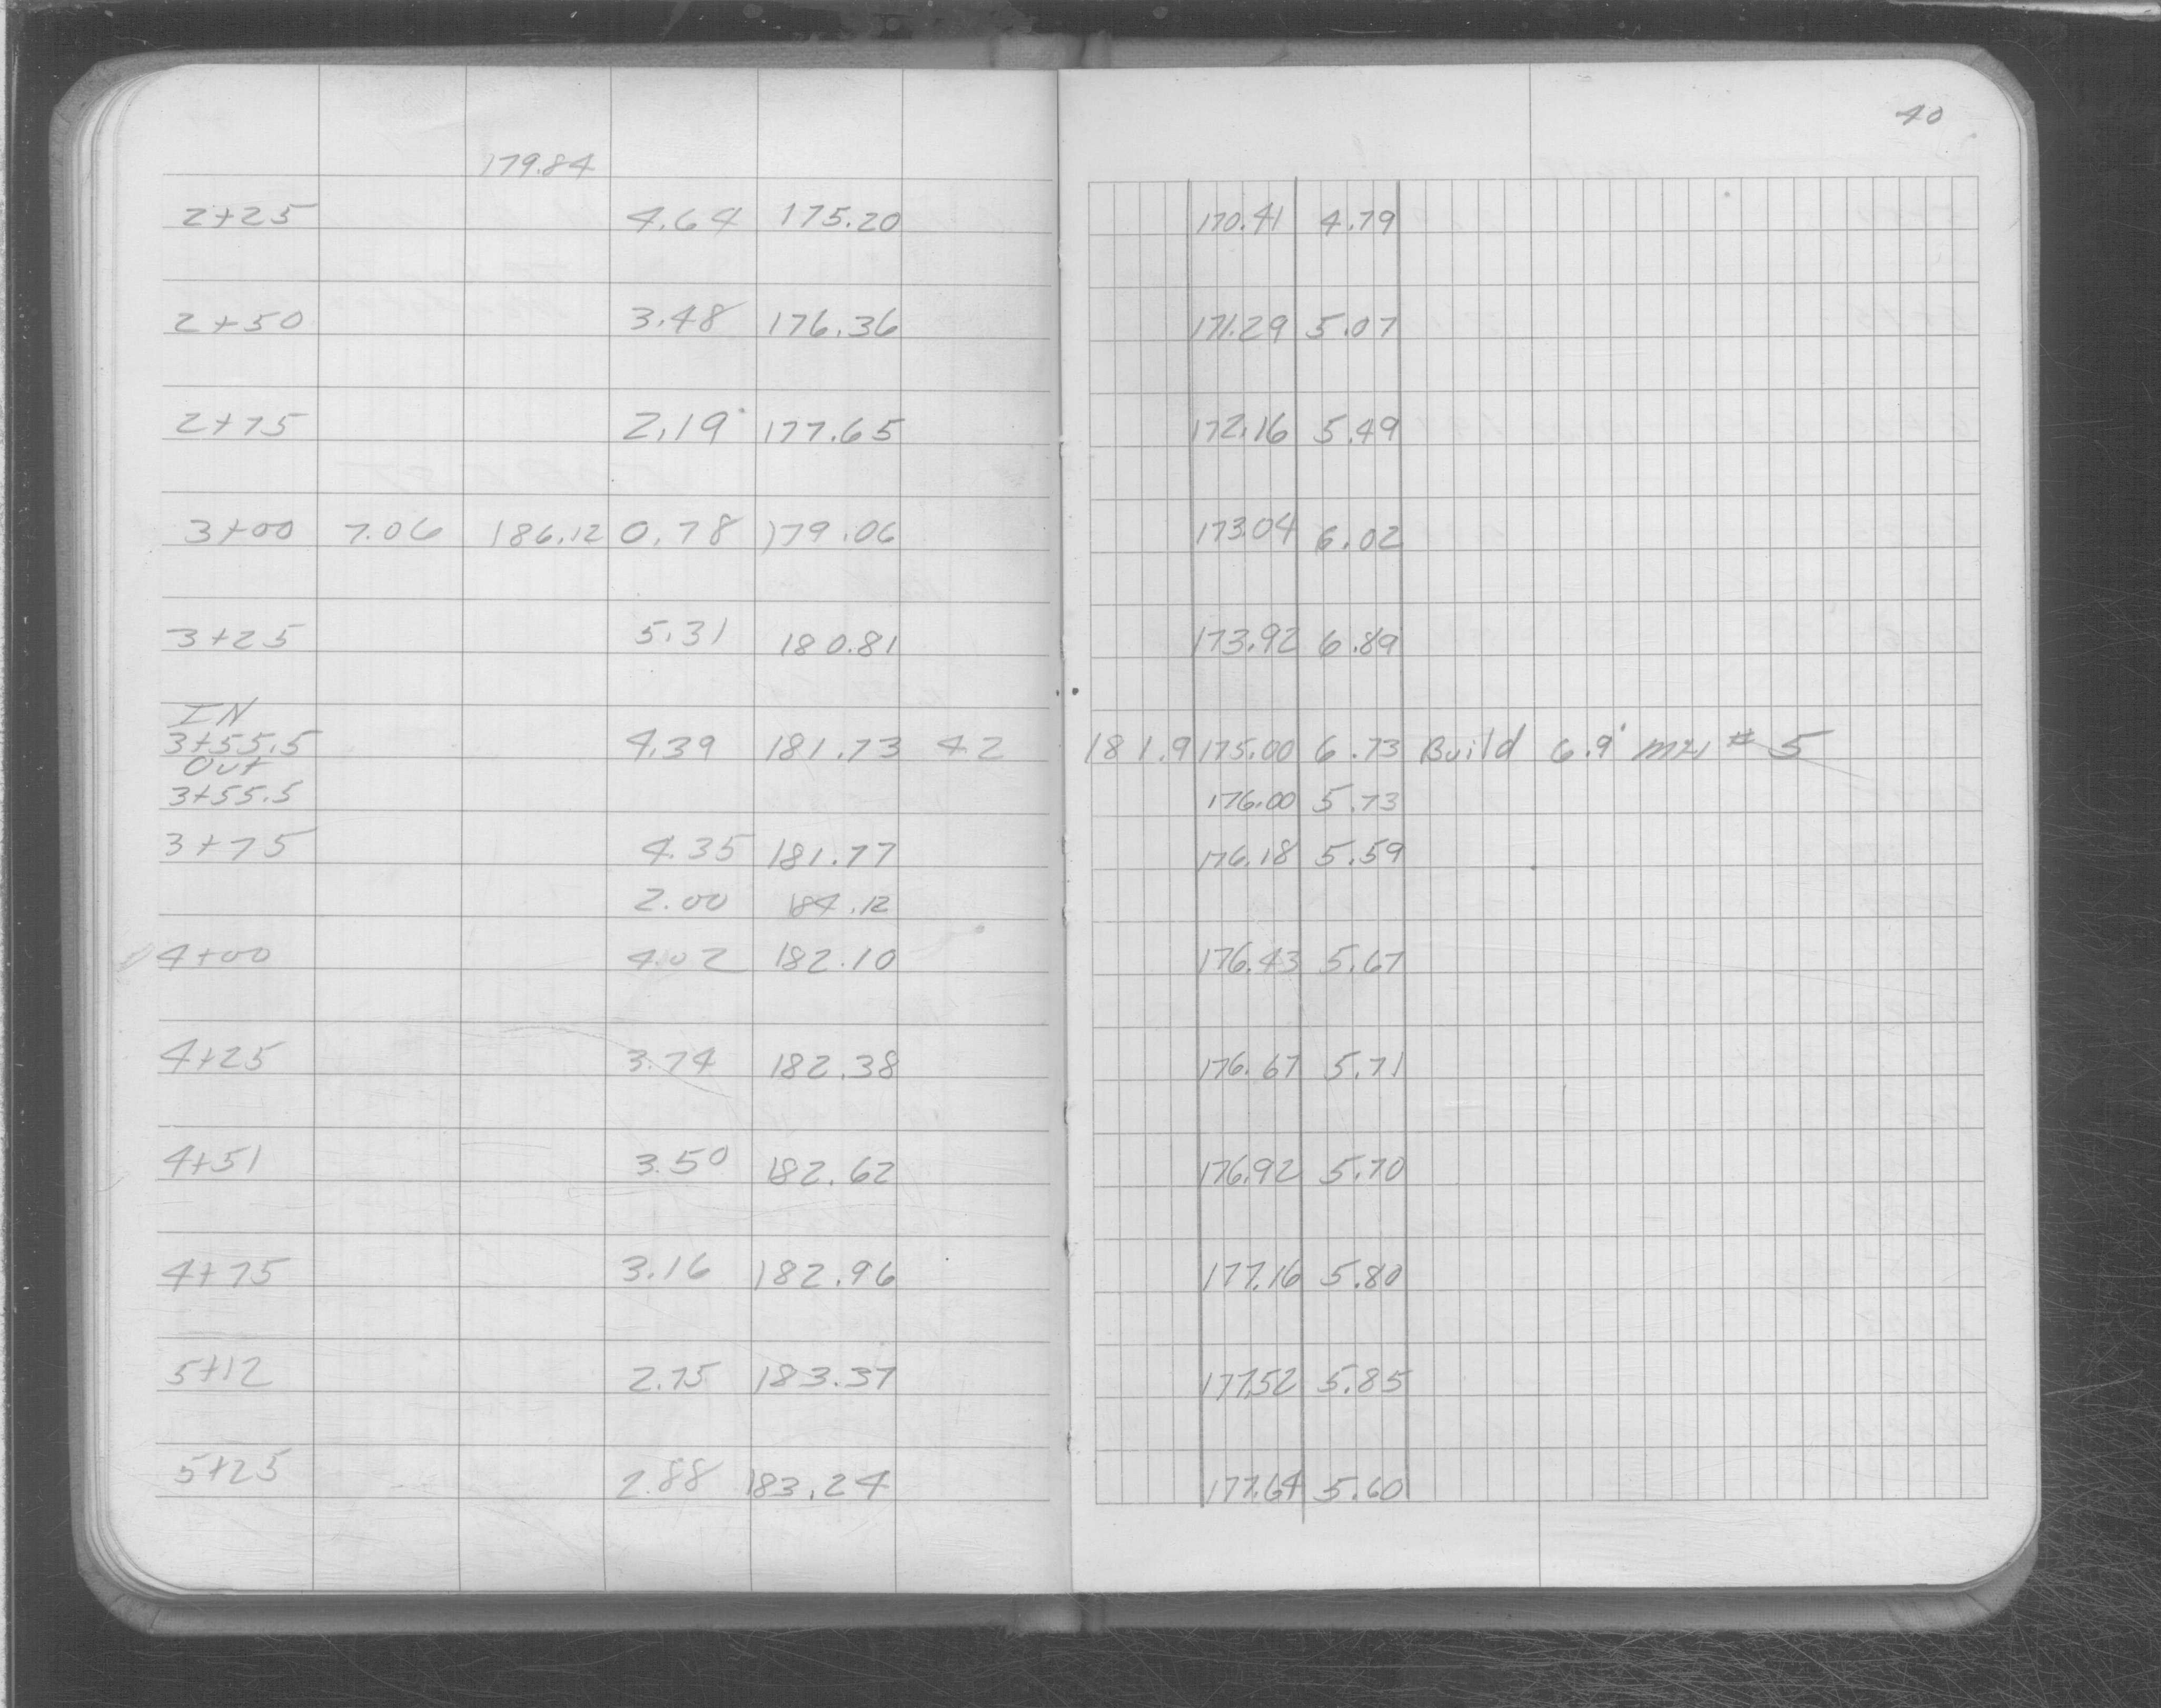 40
179.84
2+25 4.64 175.20 170.41 4.79
2+50 3.48 176.36 171.29 5.07
2+75 2.19 177.65 172.16 5.49
3+00 7.06 186.12 0.78 179.06 173.04 6.02
3+25 5.31 180.81 173.92 6.89
IN
3+55.5 4.39 181.73 42 181.9 175.00 6.73 Build 6.9' MH # 5
Out
3+55.5 176.00 5.73
3+75 4.35 181.77 176.18 5.59
2.00 184.12
4+00 4.02 182.10 176.43 5.67
4+25 3.74 182.38 176.67 5.71
4+51 3.50 182.62 176.92 5.70
4+75 3.16 182.96 177.16 5.80
5+12 2.75 183.37 177.52 5.85
5+25 2.88 183.24 177.64 5.60